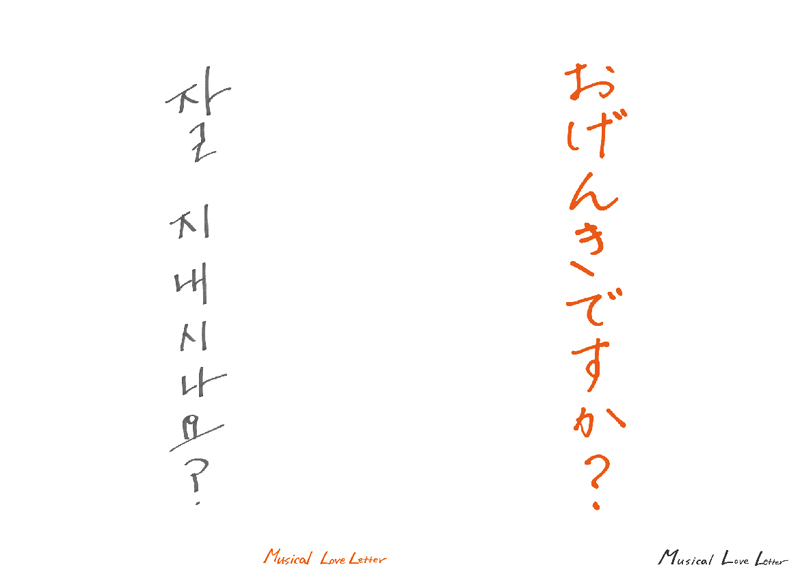 잘 지내시나요?
Musical Love Letter
おげんきですか?
Musical Love Letter